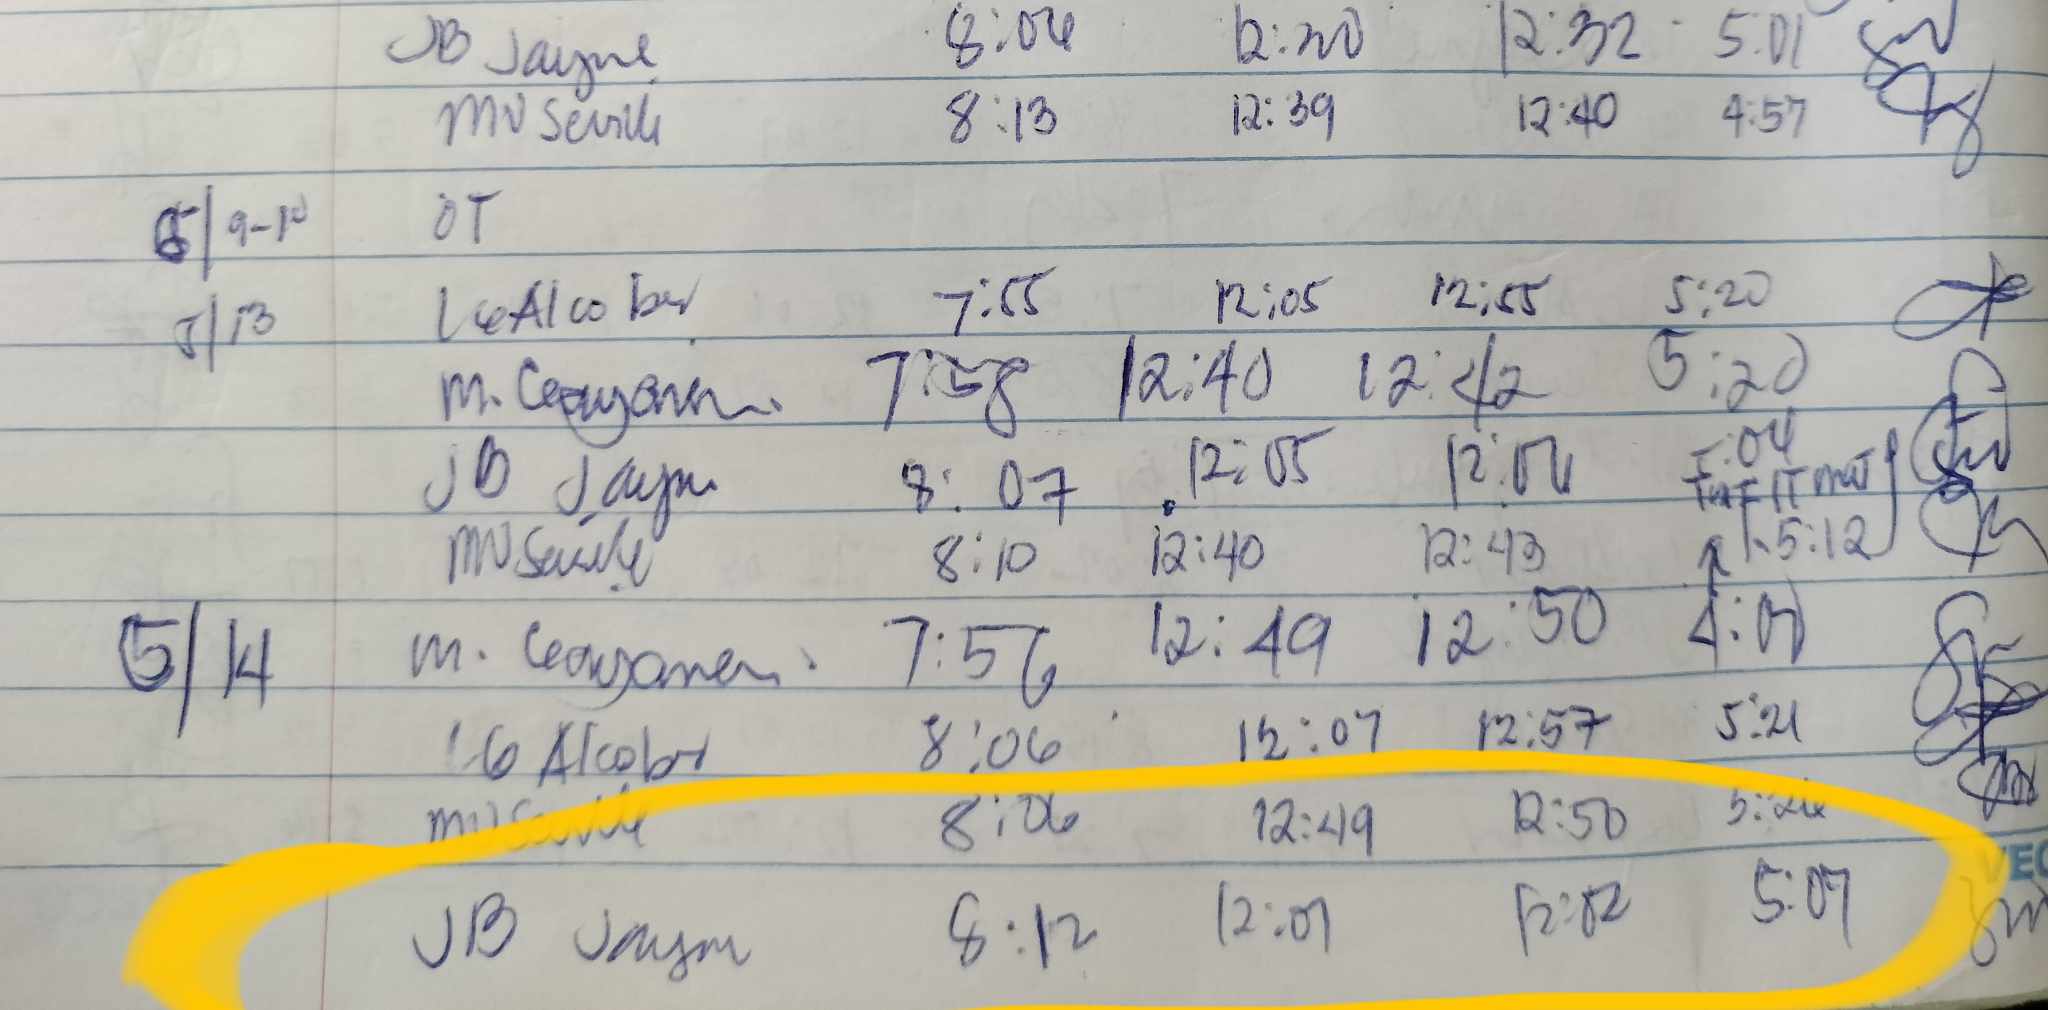 JB Jayne 8:04 12:30 12:32 5:01
MV Seville 8:13 12:39 12:40 4:57
5/9-10 OT
5/13 LG Alcober 7:55 12:05 12:55 5:20
M. 7:58 12:40 12:42 5:20
JB Jayne 8:07 12:05 12:06 5:04
MV Seville 8:10 12:40 12:43 5:12
5/14 M. 7:56 12:49 12:50 4:07
LG Alcober 8:06 12:07 12:57 5:21
MV Seville 8:06 12:49 12:50 5:26
VEC
JB Jayne 8:12 12:01 12:02 5:07